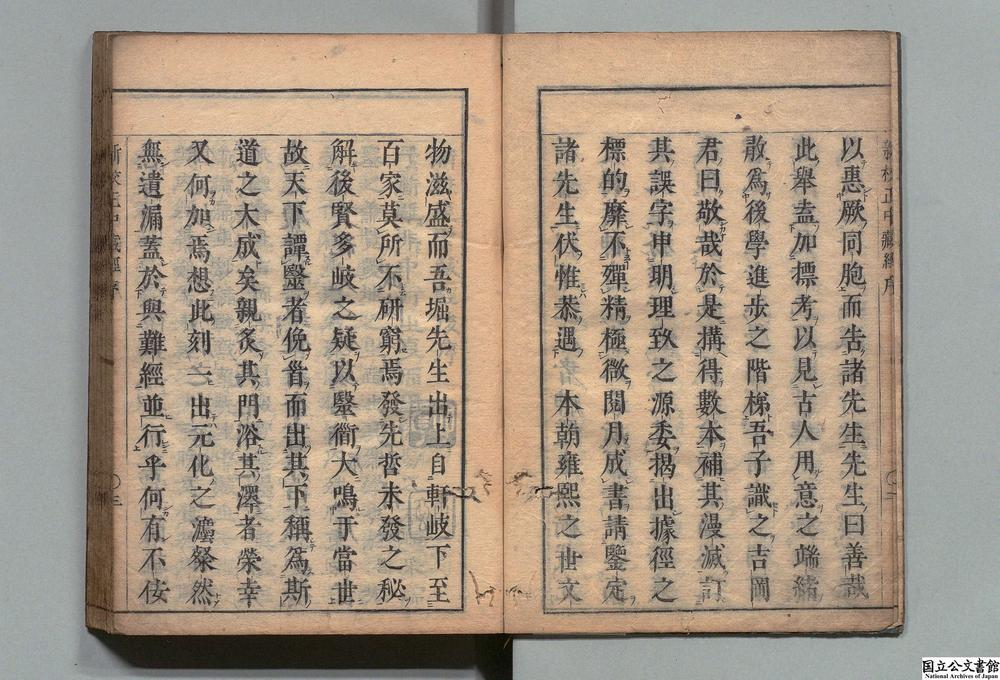 以惠厥同胞而告諸先生先生曰善哉
此舉盍加標考以見古人用意之端緒
敢爲後學進步之階梯吾子識之吉岡
君曰敬哉於是搆得數本補其漫滅訂
其誤字申明理致之源委揭出據徑之
標的靡不殫精極微閱月成書請鑒定
諸先生伏惟恭遇本朝雍熙之世文
新校正中藏經序
物滋盛而吾堀先生出上自軒岐下至
百家莫所不研窮焉發先哲未發之秘
解後賢多岐之疑以毉衟大鳴于當世
故天下譚毉者俛首而出其下稱爲斯
道之大成矣親炙其門浴其澤者榮幸
又何加焉想此刻一出元化之灋粲然
無遺漏蓋於與難經並行乎何有不佞
新校正中藏經序
國立公文書館
National Archives of Japan